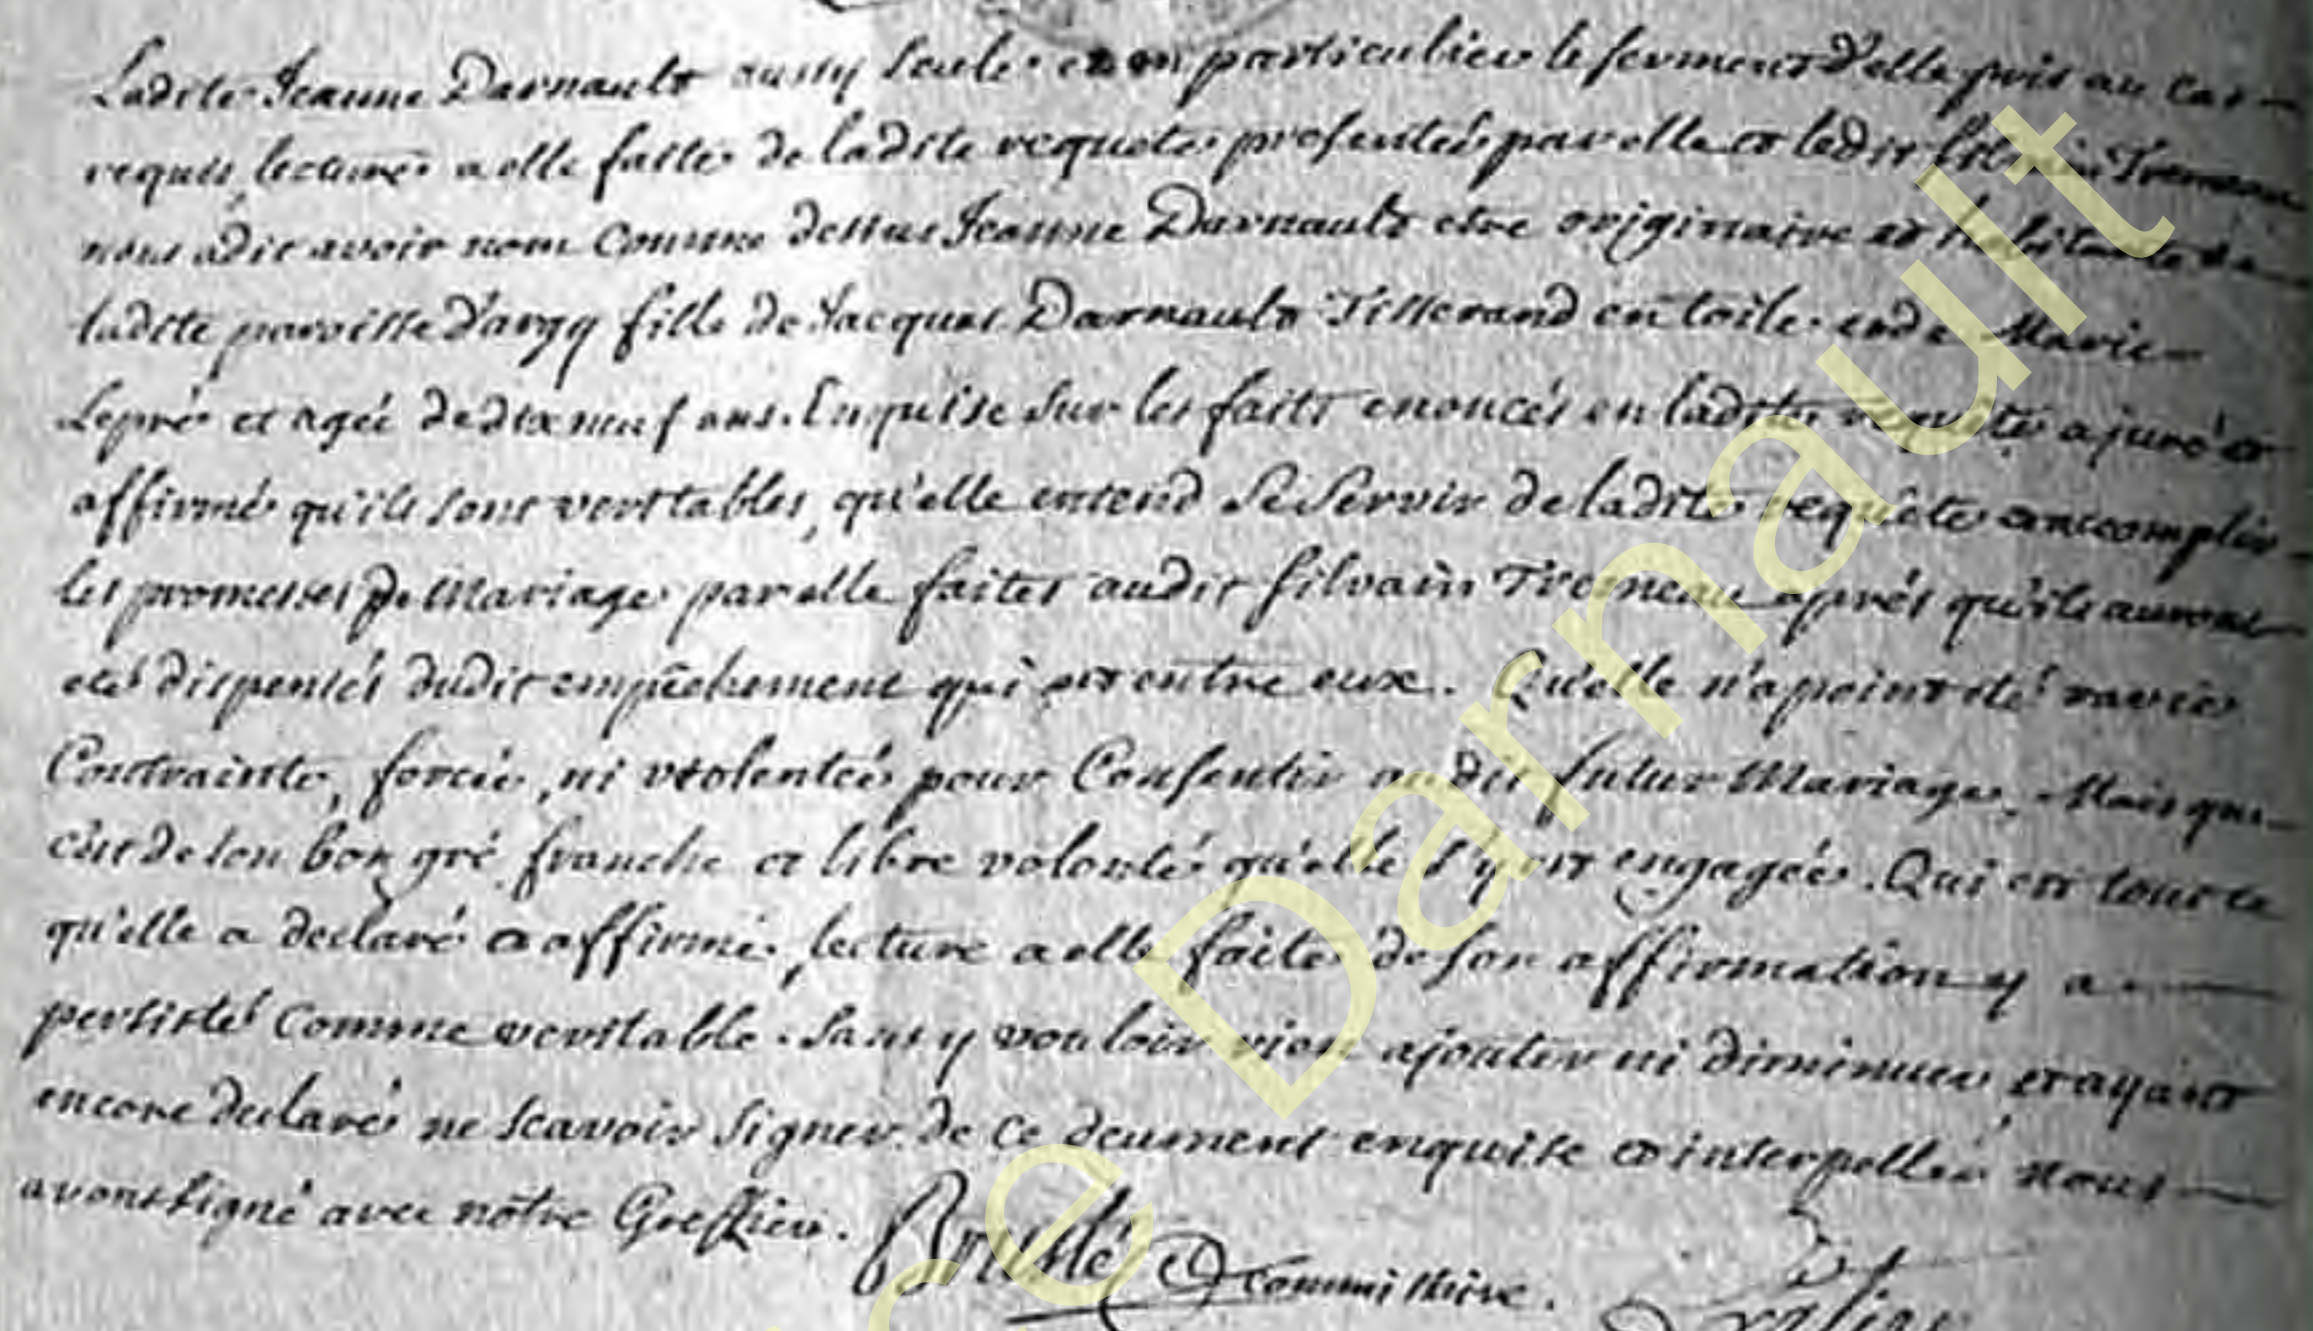 Ladite Jeanne Darnault aussy seule et en particulier le serment d'elle pris au cas
requis, lecture a elle faite de ladite requete presentée par elle et ledit Silvain
nous a dit avoir nom comme dessus Jeanne Darnault etre originaire et habitante de
ladite paroisse d'argy fille de Jacques Darnault Tisserand en toile et de Marie
Lepré et agée de dix neuf ans. Enquise sur les faits enoncés en ladite requete a juré et
affirmé qu'ils sont veritables, qu'elle entend se servir de ladite requête accomplir
les promesses de Mariage par elle faites audit Silvain après qu'ils auront
eté dispensés dudit empêchement qui est entre eux. Qu'elle n'a point eté ravie
Contrainte, forcée, ni violentée pour Consentir au dit futur Mariage, Mais que
c'est de son bon gré franche et libre volonté qu'elle s'y est engagée. Qui est tout ce
qu'elle a declaré et affirmé, lecture a elle faite de son affirmation y a
persisté Comme veritable. Sans y vouloir rien ajouter ni diminuer, et ayant
encore declaré ne scavoir signer de ce deument enquise et interpellée, nous
avons signé avec nôtre Greffier. commissaire.
ce Darnault